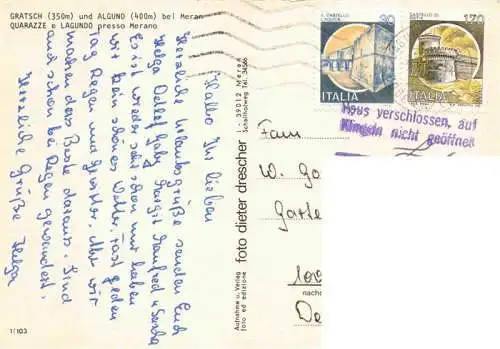 GRATSCH (350m) und ALGUND (400m) bei Meran
QUARAZZE e LAGUNDO presso Merano
Hallo Ihr lieben
Herzliche Urlaubsgrüße senden Euch
Helga Detlef Gaby Margit Manfred u Sascha
Es ist wieder sehr schön nur haben
wir kein schönes Wetter, fast jeden
Tag Regen und Gewitter. Aber wir
machen das Beste daraus. Sind
auch schon bei Regen gewandert.
Herzliche Grüße Helga
1/103
Aufnahme u. Verlag
foto ed edizione
foto dieter drescher
- 39012 Meran
Schallhofweg Tel. 34566
ITALIA
170
ITALIA
Haus verschlossen, auf
Klingeln nicht geöffnet
Fam
W. Go
Garte
100
nach
De